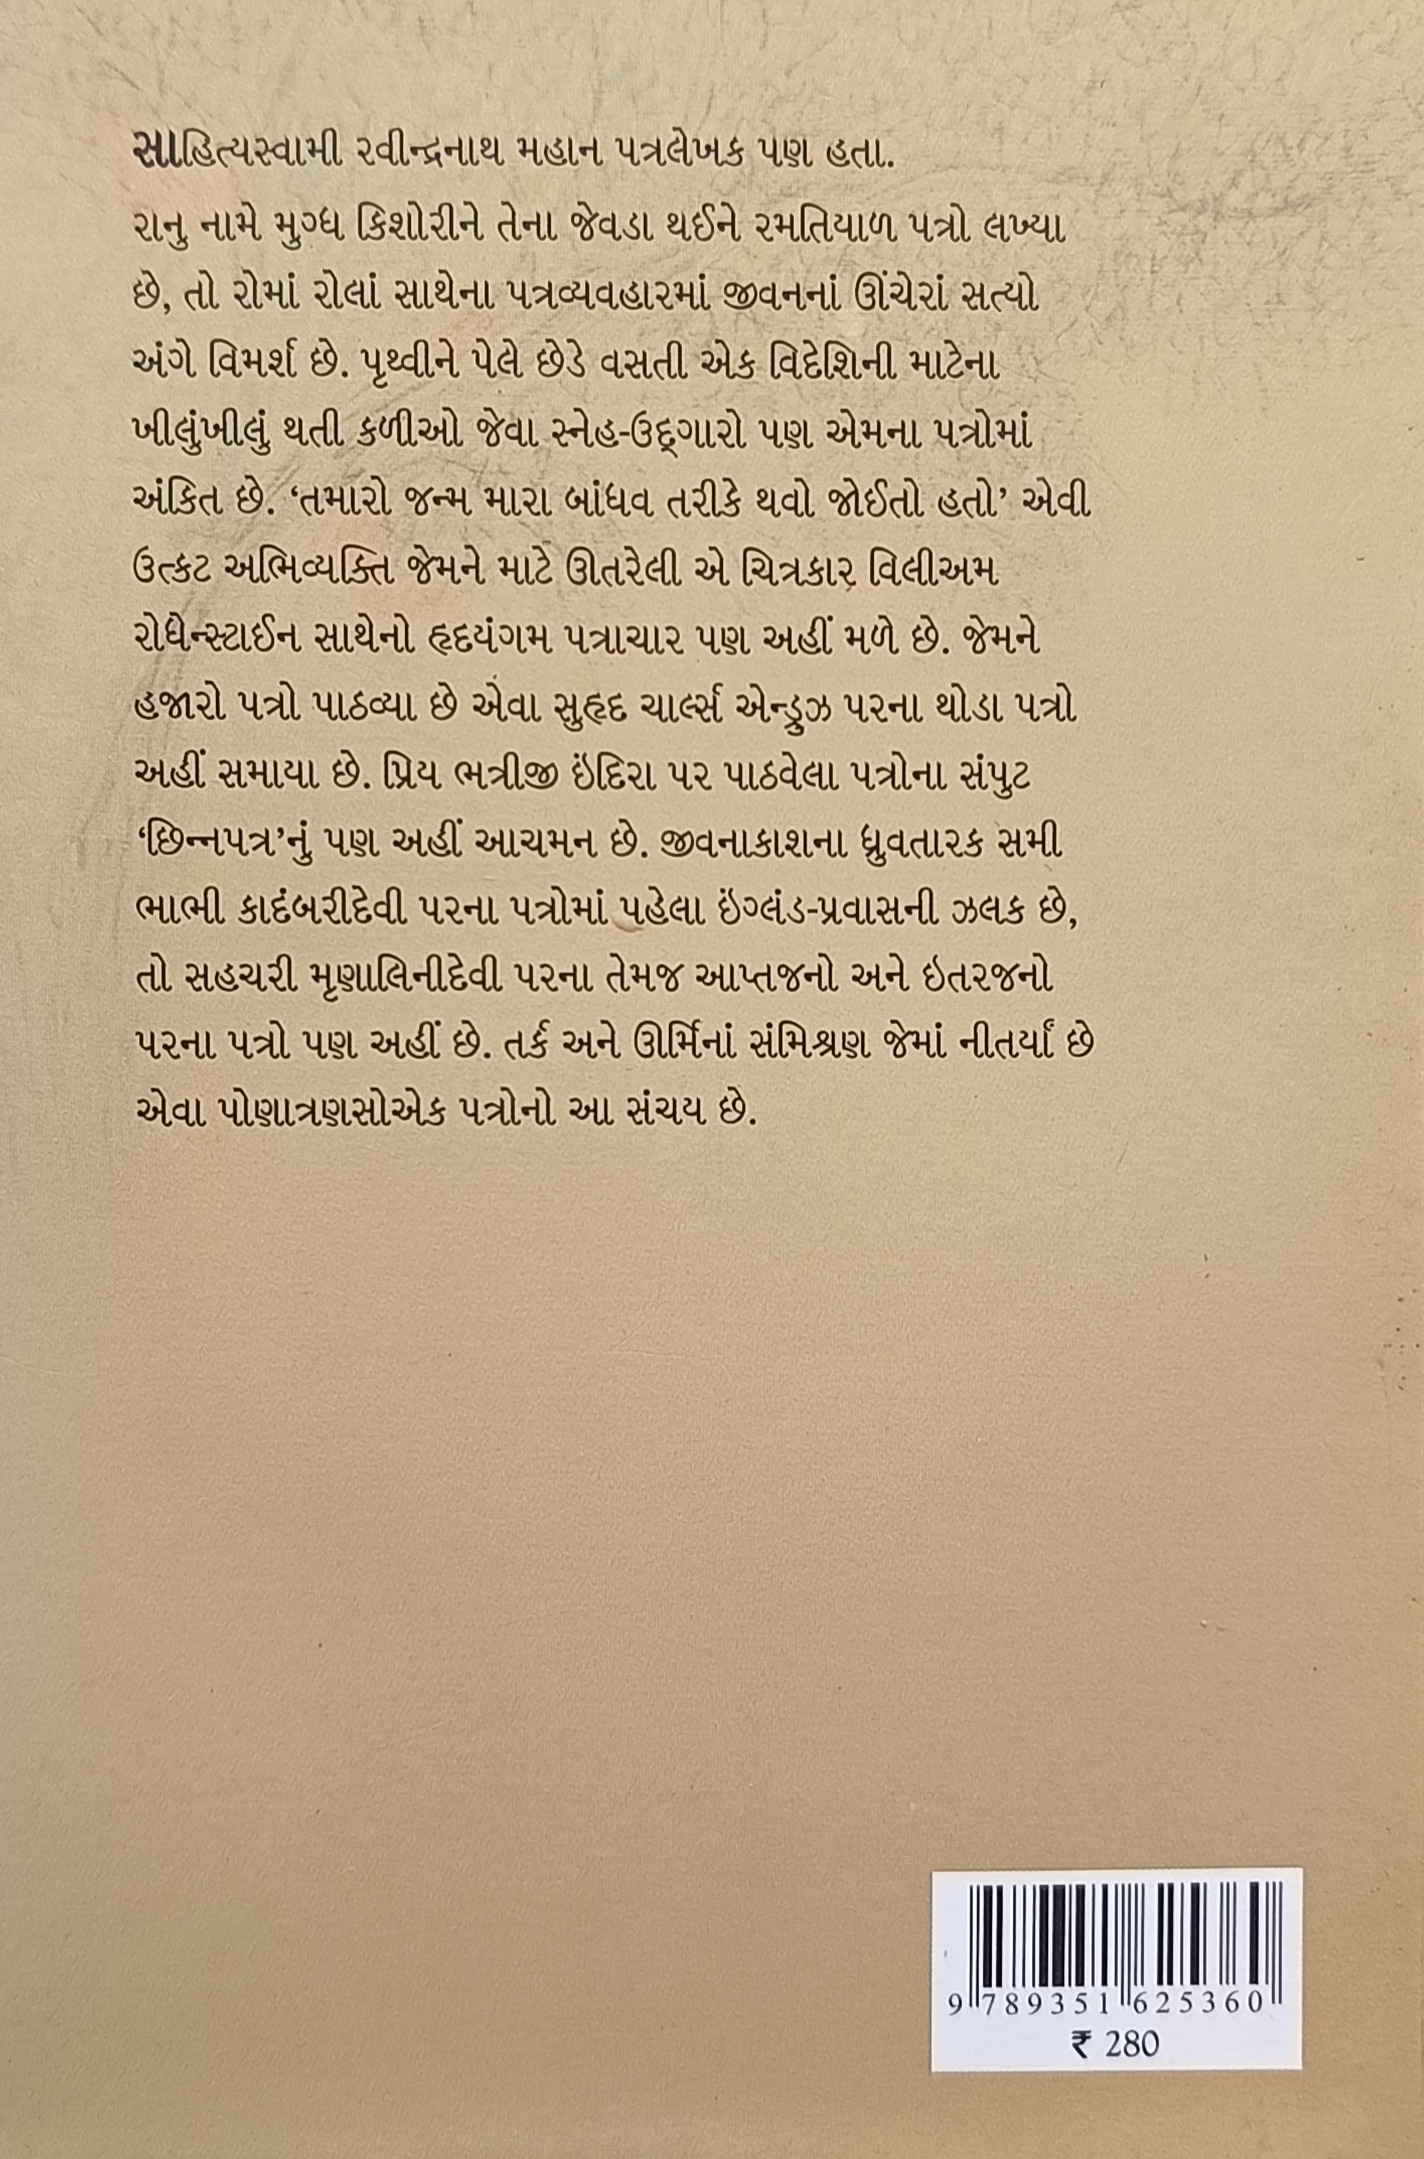 સાહિત્યસ્વામી રવીન્દ્રનાથ મહાન પત્રલેખક પણ હતા.
રાનુ નામે મુગ્ધ કિશોરીને તેના જેવડા થઈને રમતિયાળ પત્રો લખ્યા
છે, તો રોમાં રોલાં સાથેના પત્રવ્યવહારમાં જીવનનાં ઊંચેરાં સત્યો
અંગે વિમર્શ છે. પૃથ્વીને પેલે છેડે વસતી એક વિદેશિની માટેના
ખીલુંખીલું થતી કળીઓ જેવા સ્નેહ-ઉદ્‌ગારો પણ એમના પત્રોમાં
અંકિત છે. ‘તમારો જન્મ મારા બાંધવ તરીકે થવો જોઈતો હતો’ એવી
ઉત્કટ અભિવ્યક્તિ જેમને માટે ઊતરેલી એ ચિત્રકાર વિલીઅમ
રોધેન્સ્ટાઈન સાથેનો હૃદયંગમ પત્રાચાર પણ અહીં મળે છે. જેમને
હજારો પત્રો પાઠવ્યા છે એવા સુહૃદ ચાર્લ્સ એન્ડ્રુઝ પરના થોડા પત્રો
અહીં સમાયા છે. પ્રિય ભત્રીજી ઇંદિરા પર પાઠવેલા પત્રોના સંપુટ
‘છિન્નપત્ર’નું પણ અહીં આચમન છે. જીવનાકાશના ધ્રુવતારક સમી
ભાભી કાદંબરીદેવી પરના પત્રોમાં પહેલા ઇંગ્લંડ-પ્રવાસની ઝલક છે,
તો સહચરી મૃણાલિનીદેવી પરના તેમજ આપ્તજનો અને ઇતરજનો
પરના પત્રો પણ અહીં છે. તર્ક અને ઊર્મિનાં સંમિશ્રણ જેમાં નીતર્યાં છે
એવા પોણાત્રણસોએક પત્રોનો આ સંચય છે.
9 789351 625360
₹ 280